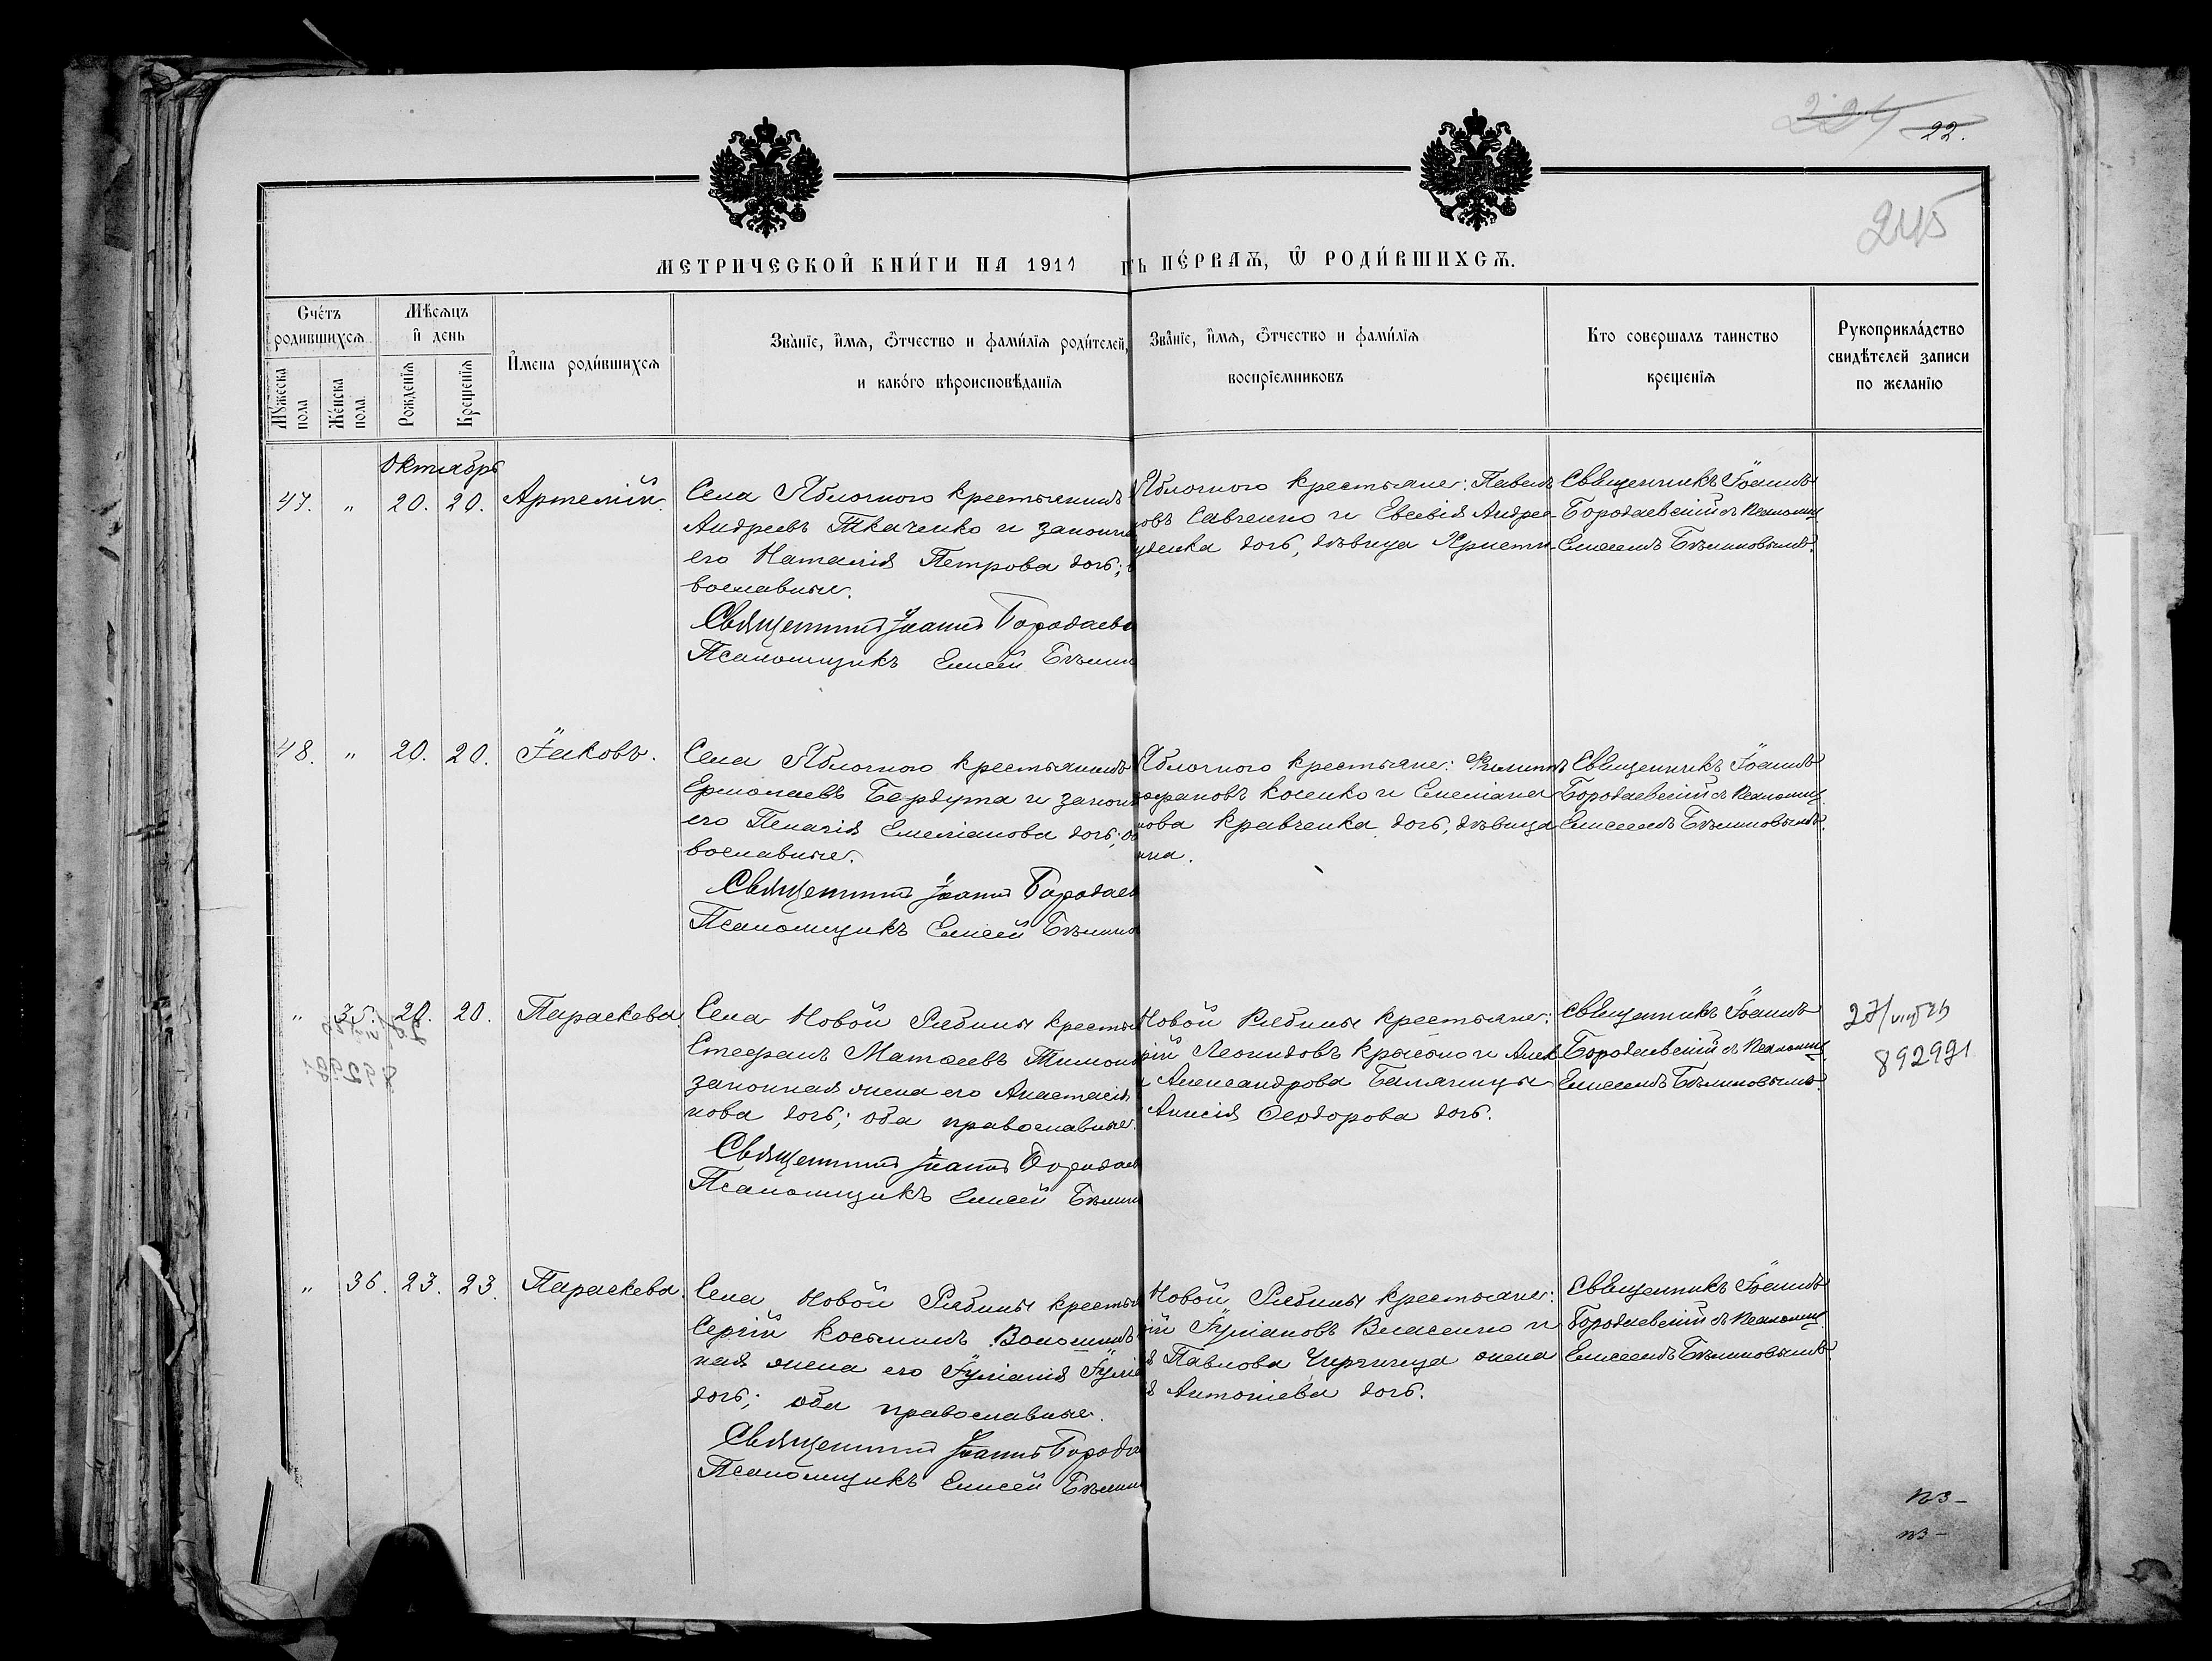 22.
245
МЕТРИЧЕСКОЙ КНИ́ГИ НА 1911
ПЕ́РВАѦ, Ѡ РОДИ́ВШИХСѦ.
Сче́тъ родившихсѧ
Мѣсѧцъ и день
Мꙋжеска пола
Же́нска пола
Рожденїѧ
Крещенїѧ
И҆мена роди́вшихсѧ
Зва́нїе, и҆мѧ, ѻ҆тчество и фами́лїѧ роди́телей,
и како́го вѣроисповѣ́данїѧ
Зва́нїе, и҆мѧ, ѻ҆тчество и фами́лїѧ
воспрїемниковъ
Кто совершалъ таинство
крещенїѧ
Рукоприкла́дство
свидѣ́телей записи
по жела́нїю
Октябрь
47. " 20. 20. Артемій.
Села Яблочного крестьянинъ
Андреевъ Ткаченко и законн
его Наталія Петрова дочь;
вославные.
Священникъ Іоаннъ Бородаев
Псаломщикъ Елисей
Яблочного крестьяне: Павелъ
овъ Савченко и Евсевія Андре-
уденка дочь, дѣвица Христи-
Священникъ Іоаннъ
Бородаевскій съ псаломщ
Елисеемъ
48. " 20. 20. Іаковъ.
Села Яблочного крестьянинъ
Ермолаевъ Бердута и закон
его Пелагія Емеліанова дочь; об
вославные.
Священникъ Іоаннъ Бородаев
Псаломщикъ Елисей
Яблочного крестьяне: Филиппъ
офановъ Косенко и Емеліана
нова Кравченка дочь, дѣвица
Священникъ Іоаннъ
Бородаевскій съ псаломщ
Елисеемъ
" 35. 20. 20. Параскева
Села Новой Рябины кресть
Стефанъ Матѳеевъ Тимон
законная жена его Анастасія
нова дочь; оба православные.
Священникъ Іоаннъ Бородаев
Псаломщикъ Елисей
Новой Рябины крестьяне:
рій Леонидовъ
Александрова
Анисія Ѳеодорова дочь.
Священникъ Іоаннъ
Бородаевскій съ псаломщ
Елисеемъ
892921
" 36. 23. 23. Параскева.
Села Новой Рябины кресть
Сергій Косминъ Волошинъ
ная жена его Іуліанія Іулі
дочь; оба православные.
Священникъ Іоаннъ Борода
Псаломщикъ Елисей
Новой Рябины крестьяне:
ій Іуліановъ Власенко и
я Павлова жена
я Антоніева дочь.
Священникъ Іоаннъ
Бородаевскій съ псаломщ
Елисеемъ